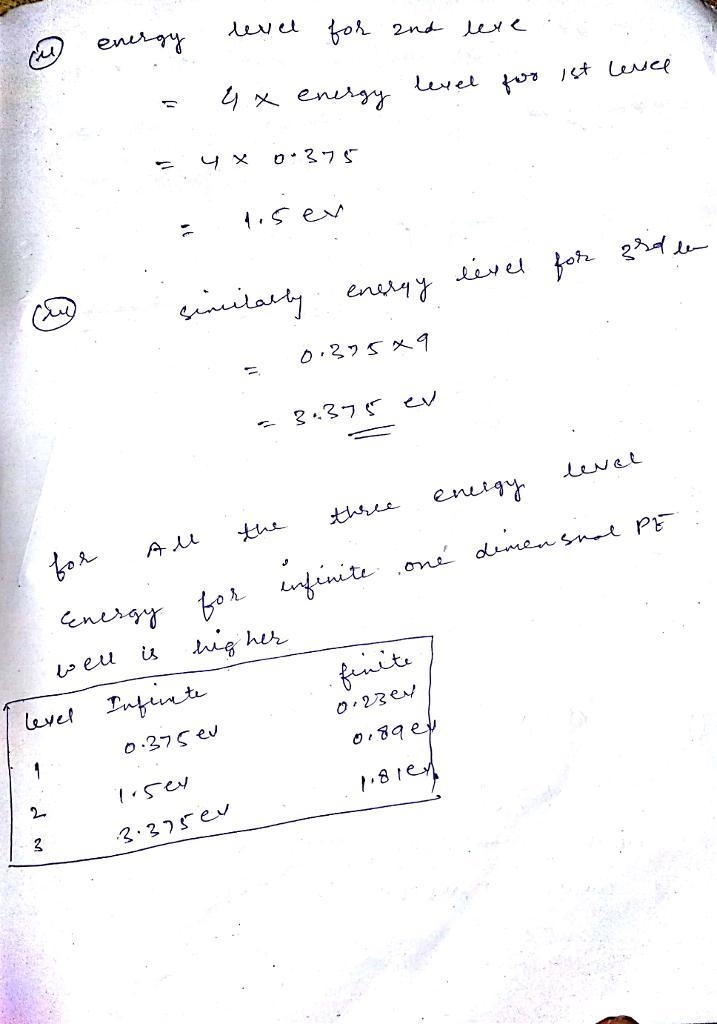 (ii) energy level for 2nd leve
= 4 x energy level for 1st level
= 4 x 0.375
= 1.5 ev
(iii) similarly energy level for 3rd le
= 0.375 x 9
= 3.375 ev
for All the three energy level
Energy for infinite one dimensnal PE
well is higher
level Infinite finite
1 0.375 ev 0.23 ev
2 1.5 ev 0.89 ev
3 3.375 ev 1.81 ev